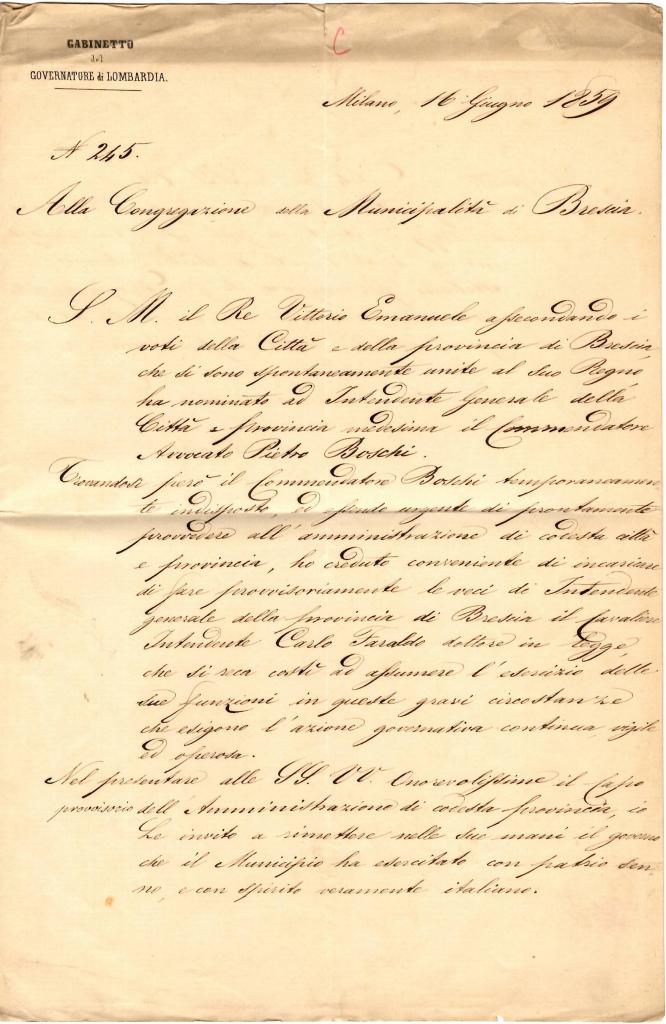 C
GABINETTO
del
GOVERNATORE di LOMBARDIA.
Milano, 16 Giugno 1859
N 245.
Alla Congregazione della Municipalità di Brescia.
S. M. il Re Vittorio Emanuele assecondando i
voti della Città e della provincia di Brescia,
che si sono spontaneamente unite al suo Regno
ha nominato ad Intendente Generale della
Città e provincia medesima il Commendatore
Avvocato Pietro Boschi.
Trovandosi però il Commendatore Boschi temporaneamen
te indisposto, ed essendo urgente di prontamente
provvedere all'amministrazione di codesta città
e provincia, ho creduto conveniente di incaricare
di fare provvisoriamente le veci di Intendente
generale della provincia di Brescia il Cavaliere
Intendente Carlo Faraldo dottore in legge,
che si reca costì ad assumere l'esercizio delle
sue funzioni in queste gravi circostanze
che esigono l'azione governativa continua, vigile
ed operosa.
Nel presentare alle SS. VV. Onorevolissime il Capo
provvisorio dell'Amministrazione di codesta provincia, io
Le invito a rimettere nelle sue mani il governo
che il Municipio ha esercitato con patrio sen
no, e con spirito veramente italiano.